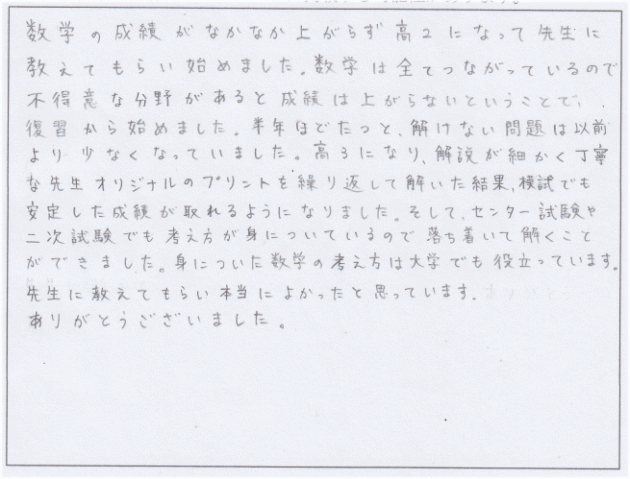 数学の成績がなかなか上がらず高2になって先生に
教えてもらい始めました。数学は全てつながっているので
不得意な分野があると成績は上がらないということで、
復習から始めました。半年ほどたつと、解けない問題は以前
より少なくなっていました。高3になり、解説が細かく丁寧
な先生オリジナルのプリントを繰り返して解いた結果、模試でも
安定した成績が取れるようになりました。そして、センター試験や
二次試験でも考え方が身についているので落ち着いて解くこと
ができました。身についた数学の考え方は大学でも役立っています。
先生に教えてもらい本当によかったと思っています。
ありがとうございました。